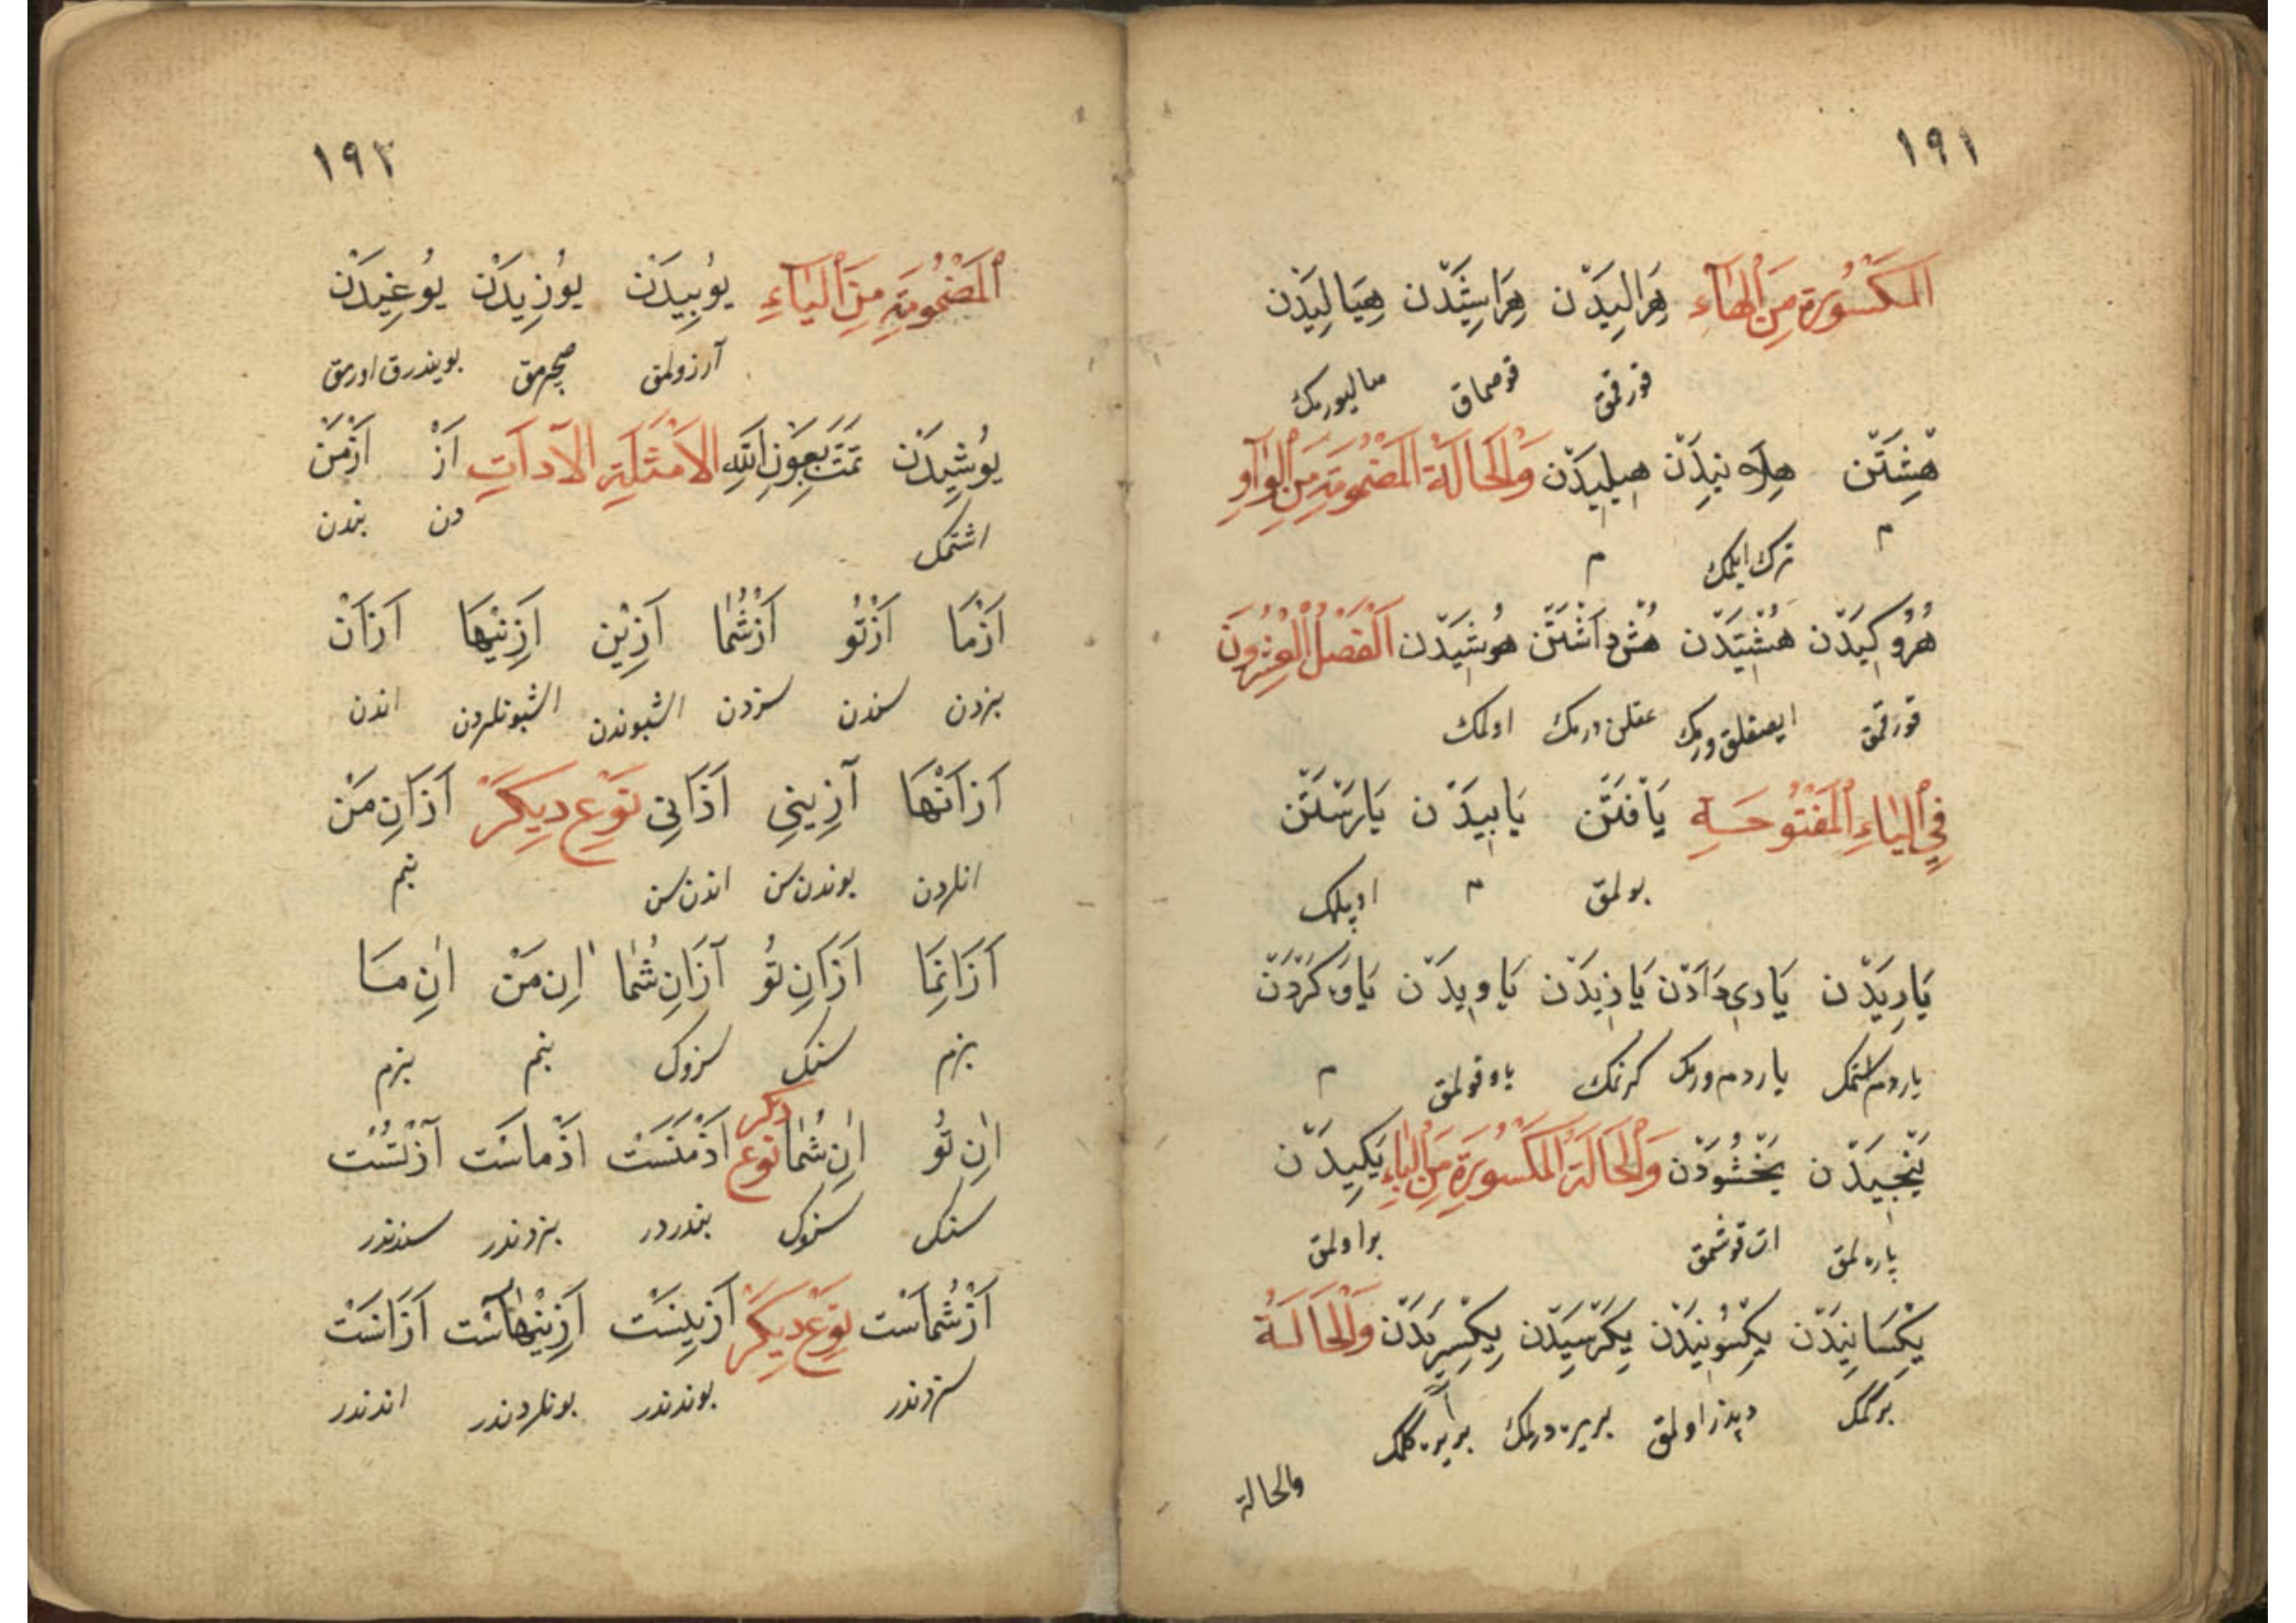 ١٩١
اَلْمَكْسُورَةِ مِنَ الْهَاءِ هِرَالِيدَنْ هِرَاشِيدَنْ هِيَالِيدَنْ
قورقمق قوصماق صاليورمك
هِشِتَنْ هِلاَنِيدَنْ هِيلِيدَنْ وَالْحَالَةُ الْمَضْمُومَةِ مِنَ الْوَاوِ
م ترك ايلمك م
هُرُوكِيدَنْ هُشْتِيدَنْ هُشْ دَاشْتَنْ هُوشِيدَنْ اَلْفَصْلُ الْعِشْرُونَ
قورقمق عقلن درمك اولمك
فِي الْيَاءِ الْمَفْتُوحَةِ يَافْتَنْ يَابِيدَنْ يَارَسْتَنْ
بولمق م
يَارِيدَنْ يَارِي دَادَنْ يَازِيدَنْ يَاوِيدَنْ يَاوَه كَرْدَنْ
ياردم استمك ياردم ورمك كرنمك ياوقولمق م
يَنْجِيدَنْ يَخْشُودَنْ وَالْحَالَةُ الْمَكْسُورَةِ مِنَ الْيَاءِ يَكِيدَنْ
پاره لمق ات قوشمق براولمق
يِكْسَانِيدَنْ يِكْسُونِيدَنْ يِكَرْسِيدَنْ يِكْسِرِيدَنْ وَالْحَالَةُ
دپدز اولمق بريره درلمك بريره كلمك
والحالة
١٩٢
اَلْمَضْمُومَةِ مِنَ الْيَاءِ يُوبِيدَنْ يُوزِيدَنْ يُوغِيدَنْ
آرزولمق صچرمق بويندرق اورمق
يُوشِيدَنْ تَمَّتْ بِعَوْنِ اللهِ الاَمْثَلَةِ الآدَاتِ اَزْ اَزْمَنْ
اشتمك دن بندن
اَزْمَا اَزْتُو اَزْشُمَا اَزِينْ اَزِينْهَا اَزَانْ
بزدن سندن سزدن اشبوندن اشبونلردن اندن
اَزَانْهَا اَزِينِي اَزَانِي نَوْعِ دِيكَرْ اَزَانِ مَنْ
انلردن بوندن سن اندن سن بنم
اَزَانِمَا اَزَانِ تُو اَزَانِ شُمَا اٰنِ مَنْ اٰنِ مَا
بزم سنك سزوك بنم بزم
اٰنِ تُو اٰنِ شُمَا نوع دكر اَزْمَنَسْت اَزْمَاسْت اَزْتُسْت
سنك سزوك بندردر بزدندر سندندر
اَزْشُمَاسْت نَوْعِ دِيكَرْ اَزِينَسْت اَزِينْهَاسْت اَزَانَسْت
سزدندر بوندندر بونلردندر اندندر